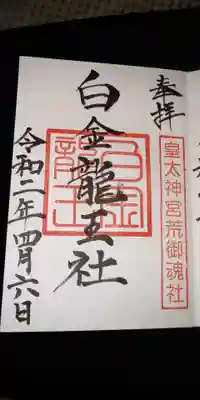 奉拝
皇太神宮荒御魂社
白金龍王社
白金龍王
令和二年四月六日